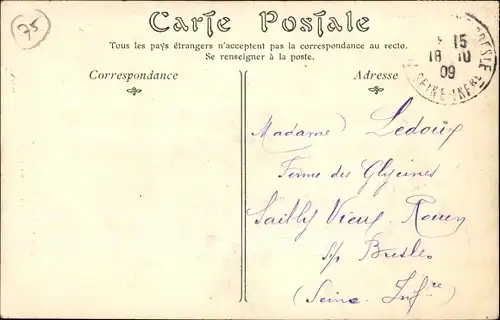 75
Carte Postale
Tous les pays étrangers n'acceptent pas la correspondance au recto.
Se renseigner à la poste.
Correspondance
Adresse
15
18 10
09
SEINE-INFRE
Madame Ledoux
Ferme des Glycines
Vieux Rouen
s/p Bresles
(Seine Infre)